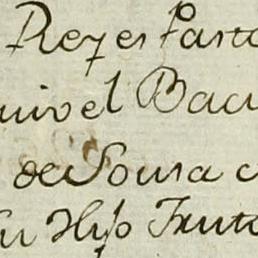 Reyes Parto
uivel Bac
de Sousa c
su Hijo Fruto